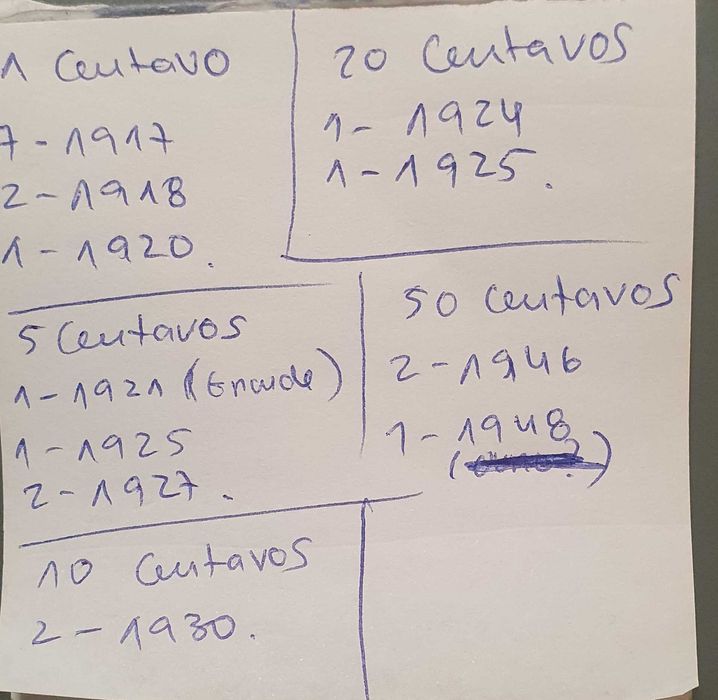 1 Centavo
7 - 1917
2 - 1918
1 - 1920.
20 Centavos
1 - 1924
1 - 1925.
5 Centavos
1 - 1921 (Grande)
1 - 1925
2 - 1927.
50 Centavos
2 - 1946
1 - 1948
10 Centavos
2 - 1930.